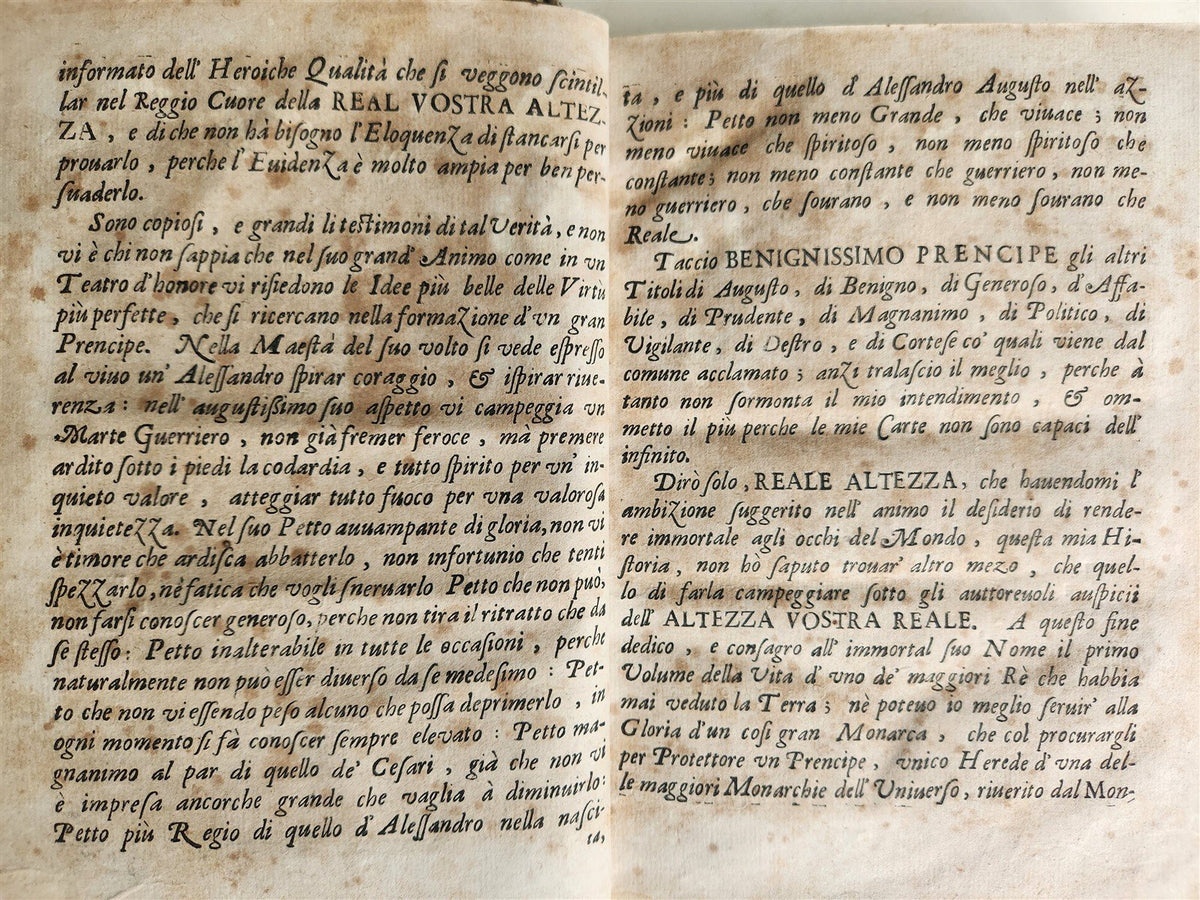 informato dell' Heroiche Qualità che ſi veggono ſcintil-
lar nel Reggio Cuore della REAL VOSTRA ALTEZ-
ZA, e di che non hà biſogno l'Eloquenza di ſtancarſi per
prouarlo, perche l'Euidenza è molto ampia per ben per-
ſuaderlo.
Sono copioſi, e grandi li teſtimoni di tal Verità, e non
vi è chi non ſappia che nel ſuo grand' Animo come in vn
Teatro d'honore vi riſiedono le Idee più belle delle Virtù
più perfette, che ſi ricercano nella formazione d'vn gran
Prencipe. Nella Maeſtà del ſuo volto ſi vede eſpreſſo
al viuo un' Aleſſandro ſpirar coraggio, & iſpirar riue-
renza: nell' auguſtißimo ſuo aſpetto vi campeggia vn
Marte Guerriero, non già fremer feroce, mà premere
ardito ſotto i piedi la codardia, e tutto ſpirito per vn' in-
quieto valore, atteggiar tutto fuoco per vna valoroſa
inquietezza. Nel ſuo Petto auuampante di gloria, non vi
è timore che ardiſca abbatterlo, non infortunio che tenti
ſpezzarlo, nè fatica che vogli ſneruarlo Petto che non può,
non farſi conoſcer generoſo, perche non tira il ritratto che da
ſe ſteſſo: Petto inalterabile in tutte le occaſioni, perche
naturalmente non può eſſer diuerſo da ſe medeſimo: Pet-
to che non vi eſſendo peſo alcuno che poſſa deprimerlo, in
ogni momento ſi fà conoſcer ſempre elevato: Petto ma-
gnanimo al par di quello de' Ceſari, già che non vi
è impreſa ancorche grande che vaglia à diminuirlo:
Petto più Regio di quello d' Aleſſandro nella naſci-
ta,
ta, e più di quello d' Aleſſandro Auguſto nell' az-
zioni: Petto non meno Grande, che viuace; non
meno viuace che ſpiritoſo, non meno ſpiritoſo che
conſtante; non meno conſtante che guerriero, non me-
no guerriero, che ſourano, e non meno ſourano che
Reale.
Taccio BENIGNISSIMO PRENCIPE gli altri
Titoli di Auguſto, di Benigno, di Generoſo, d'Affa-
bile, di Prudente, di Magnanimo, di Politico, di
Vigilante, di Deſtro, e di Corteſe co' quali viene dal
comune acclamato; anzi tralaſcio il meglio, perche à
tanto non ſormonta il mio intendimento, & om-
metto il più perche le mie Carte non ſono capaci dell'
infinito.
Dirò ſolo, REALE ALTEZZA, che hauendomi l'
ambizione ſuggerito nell' animo il deſiderio di rende-
re immortale agli occhi del Mondo, queſta mia Hi-
ſtoria, non hò ſaputo trouar' altro mezo, che quel-
lo di farla campeggiare ſotto gli auttoreuoli auſpicii
dell' ALTEZZA VOSTRA REALE. A queſto fine
dedico, e conſagro all' immortal ſuo Nome il primo
Volume della Vita d'vno de' maggiori Rè che habbia
mai veduto la Terra; nè poteuo io meglio ſeruir' alla
Gloria d'un coſi gran Monarca, che col procurargli
per Protettore vn Prencipe, vnico Herede d'vna del-
le maggiori Monarchie dell' Vniuerſo, riuerito dal Mon-